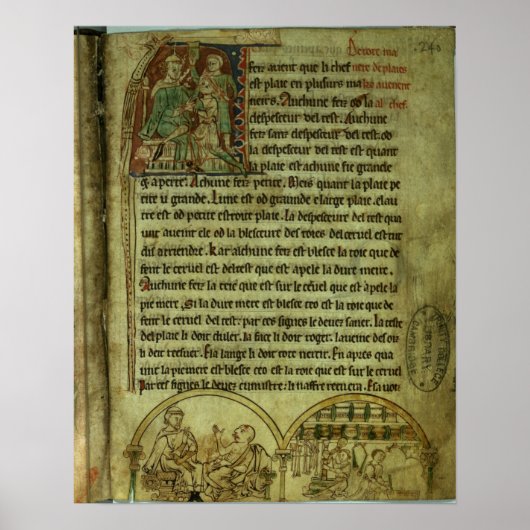 De totes ma
240
feiz avient que li chef nere de plaies
est plaie en plusurs ma ki avenent
neirs. Auchune feiz od la al chef.
despesceur del test. Auchune
feiz sanz despesceur del test. od
la despesceur del test est quant
la plaie est achune fie grande
e petite. Achune feiz petite. Meis quant la plaie pe
tite u grande. Lune est od graunde e large plaie. el au
tre est od petite estroite plaie. la despesceur del test qua
unt avient ele od la blesceure des toies del cervel est tut
dis a criendre. kar aschune fiz est blesce la toie que de
fent le cervel del test que est apele la dure mere.
Auchune fiz la toie que est sur le cervel que est apele la
pie mere. Si la dure mere est blesce ceo est la toie que de
fent le cervel del test. par ces signes le devez saver. la teste
del plaie li doit duler. la face li doit rogir.
li doit tresuer. E la lange li doit tote nercir. En apres qua
unt la pie mere est blesce ceo est la toie que est sur le cervel
Par ces signes le devez cunustre. li naffre
TRINITY COLLEGE
LIBRARY
CAMBRIDGE